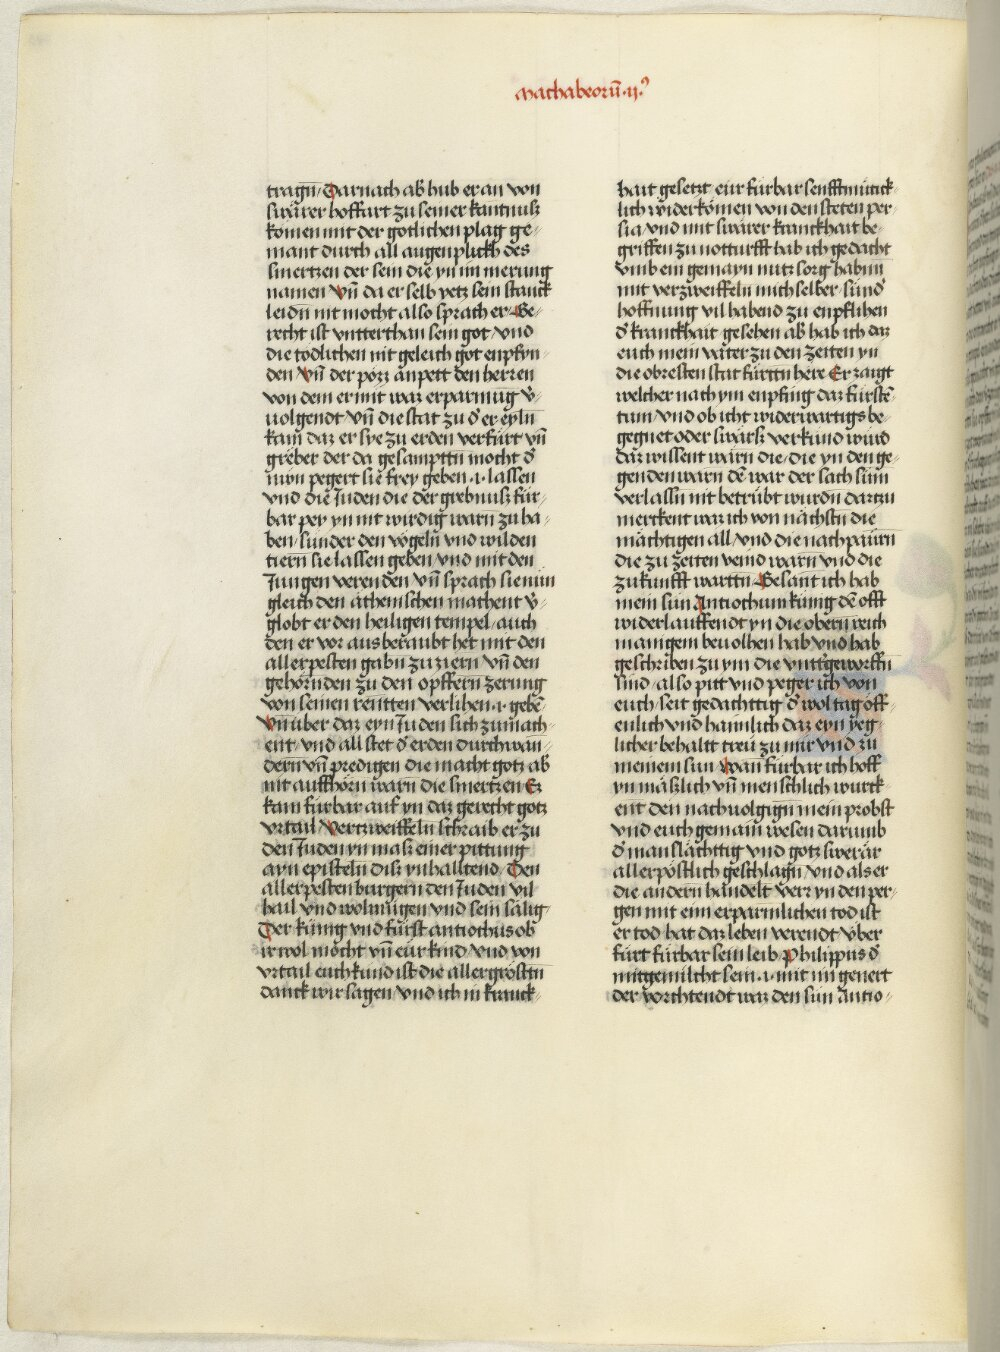 Machabeorū·ij·ꝰ
tragn̄/ Darnach ab hub er an von
swärer hoffart zu seiner kantnusz
komen mit der gotlichen plag ge⸗
mant durch all augenplickh des
smertzen der sein die yn im merung
namen Vn̄ da er selb yetz sein stanck
leidn̄ nit mocht also sprach er/ Ge⸗
recht ist vntterthan sein got/ vnd
die todlichen nit geleich got enpfyn⸗
den Vn̄ der pözz anpett den herren
von dem er nit war erparmūg v̄⸗
uolgendt/ vn̄ die stat zu d̓ er eyln̄
kam daz er sye zu erden verfürt vn̄
greber der da gesamptn̄ mocht d̓
nwn pegert sie frey geben ·i· lassen
vnd die Juden die der grebnusz für⸗
bar pey yn nit wirdig warn̄ zu ha⸗
ben/ sunder den vögeln̄ vnd wilden
tiern̄ sie lassen geben/ vnd mit den
Jungen verenden vn̄ sprach sie nun
gleich den äthenischen machent v̄⸗
globt er den heiligen tempel/ auch
den er vor ausberaubt het mit den
allerpesten gabn̄ zu ziern̄ vn̄ den
gehörnden zu den opffern zerung
von seinen rentten verlihen ·i· gebē
Vn̄ über daz eyn Juden sich zu mach⸗
ent/ vnd all stet d̓ erden durchwan⸗
dern vn̄ predigen die macht gotz ab
nit auffhörn̄ warn̄ die smertzen Ez
kam fürbar auf yn daz gerecht gotz
vrtail/ Vertzweiffeln̄ schraib er zu
den Juden yn masz einer pittung
ayn episteln̄ disz ynhalltend/ Den
allerpesten burgern den Juden vil
hail vnd wolmügen vnd sein sälig
Der künig vnd fürst antiochus ob
ir wol möcht vn̄ eür kind vnd von
vrtail euch kund ist die allergrösztn̄
danck wir sagen/ vnd ich in kranck⸗
hait gesetzt eür fürbar senfftmütick⸗
lich widerkömen von den steten per⸗
sia vnd mit swärer kranckhait be⸗
griffen zu notturfft hab ich gedacht
vmb ein gemayn nutz sorg habn̄
nit verzweiffeln mich selber/ sund̓
hoffnung vil habend zu enpflihen
d̓ kranckhait gesehen ab hab ich daz
euch mein väter zu den zeiten yn
die obresten stat fürttn̄ here Er zaigt
welcher nach ym enpfing daz fürstē⸗
tum/ vnd ob icht widerwärtigs be⸗
gegnet oder swärsz verkünd würd
daz wissent wärn die/ die yn den ge⸗
genden warn̄ dē war der sach süm̄
verlassn̄ nit betrübt wurdn̄ dartzu
merckent waz ich von nächstn̄ die
mächtigen all/ vnd die nachpaurn̄
die zu zeiten veind warn vnd die
zukunfft warttn̄/ Gesant ich hab
mein sün Antiochum künig dē offt
widerlauffendt yn die obern̄ reich
manigem beuolhen hab vnd hab
geschriben zu ym die vntt̓geworffn̄
sind/ also pitt vnd peger ich von
euch/ seit gedächttig d̓ woltag öff⸗
enlich vnd haimlich daz eyn yeg⸗
licher behaltt treü zu mir vnd zu
meinem sun Wan̄ fürbar ich hoff
yn mäszlich vn̄ menschlich würck⸗
ent den nachuolgign̄ mein probst
vnd euch gemain wesen darumb
d̓ manslächttig vnd gotz swerär
allerpöstlich geschlagn̄/ vnd als er
die andern handelt verr yn den per⸗
gen mit eim erpärmlichen tod ist
er tod hat daz leben verendt v̈ber
fürt fürbar sein leib Philippus d̓
mitgemischt sein ·i· mit im genert
der vorchtendt waz den sün antio⸗